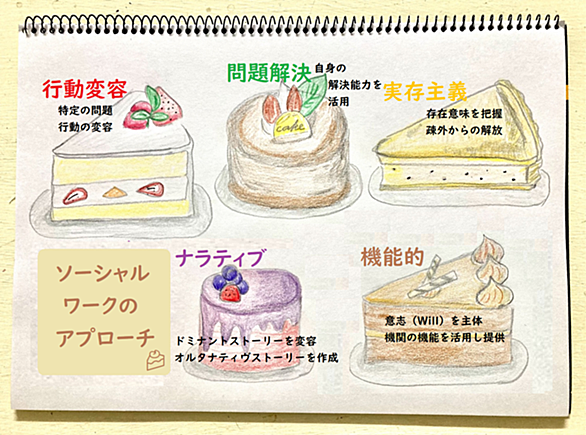 行動変容
特定の問題
行動の変容
問題解決
自身の
解決能力を
活用
cake
実存主義
存在意味を把握
疎外からの解放
ソーシャル
ワークの
アプローチ
ナラティブ
ドミナントストーリーを変容
オルタナティヴストーリーを作成
機能的
意志（Will）を主体
機関の機能を活用し提供